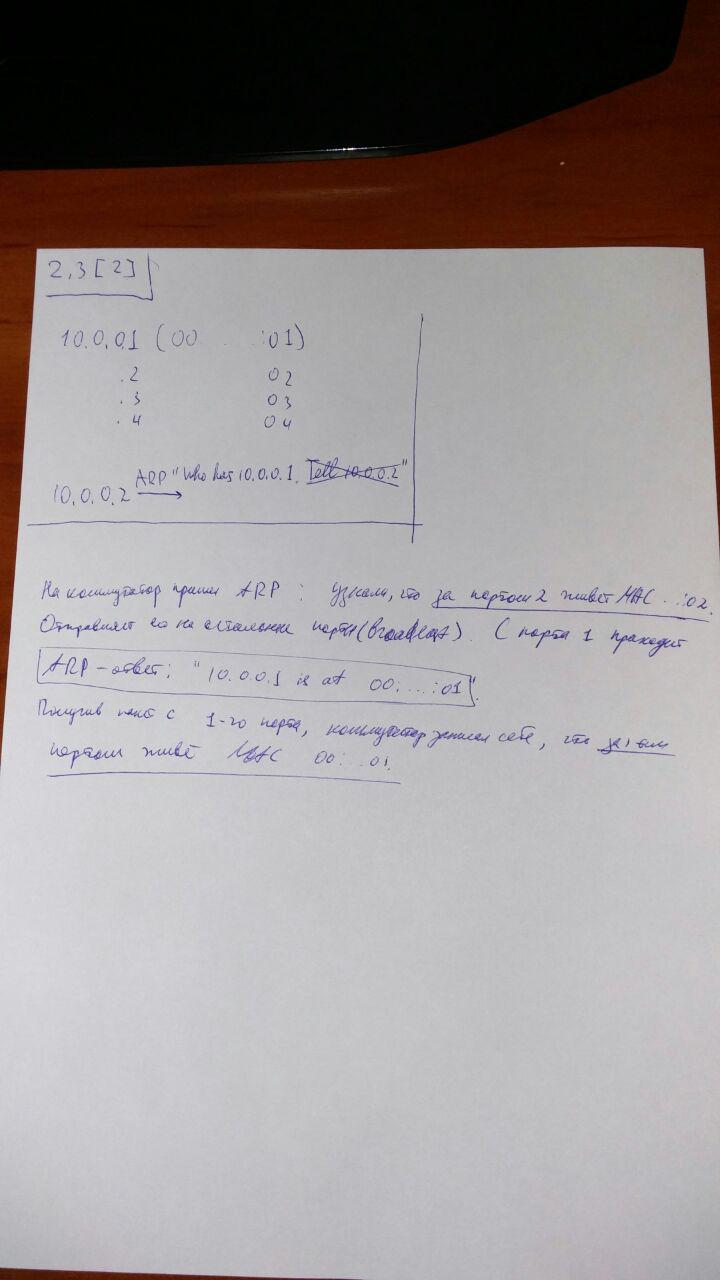 2.3[2]
10.0.0.1 (00 ... :01)
.2 02
.3 03
.4 04
ARP "Who has 10.0.0.1. Tell 10.0.0.2"
10.0.0.2 →
На коммутатор пришёл ARP : узнали, что за портом 2 живёт MAC ..:02.
Отправляет его на остальные порты (broadcast). С порта 1 приходит
ARP-ответ: "10.0.0.1 is at 00:...:01".
Получив пакет с 1-го порта, коммутатор записал себе, что за 1-ым
портом живёт MAC 00:...01.